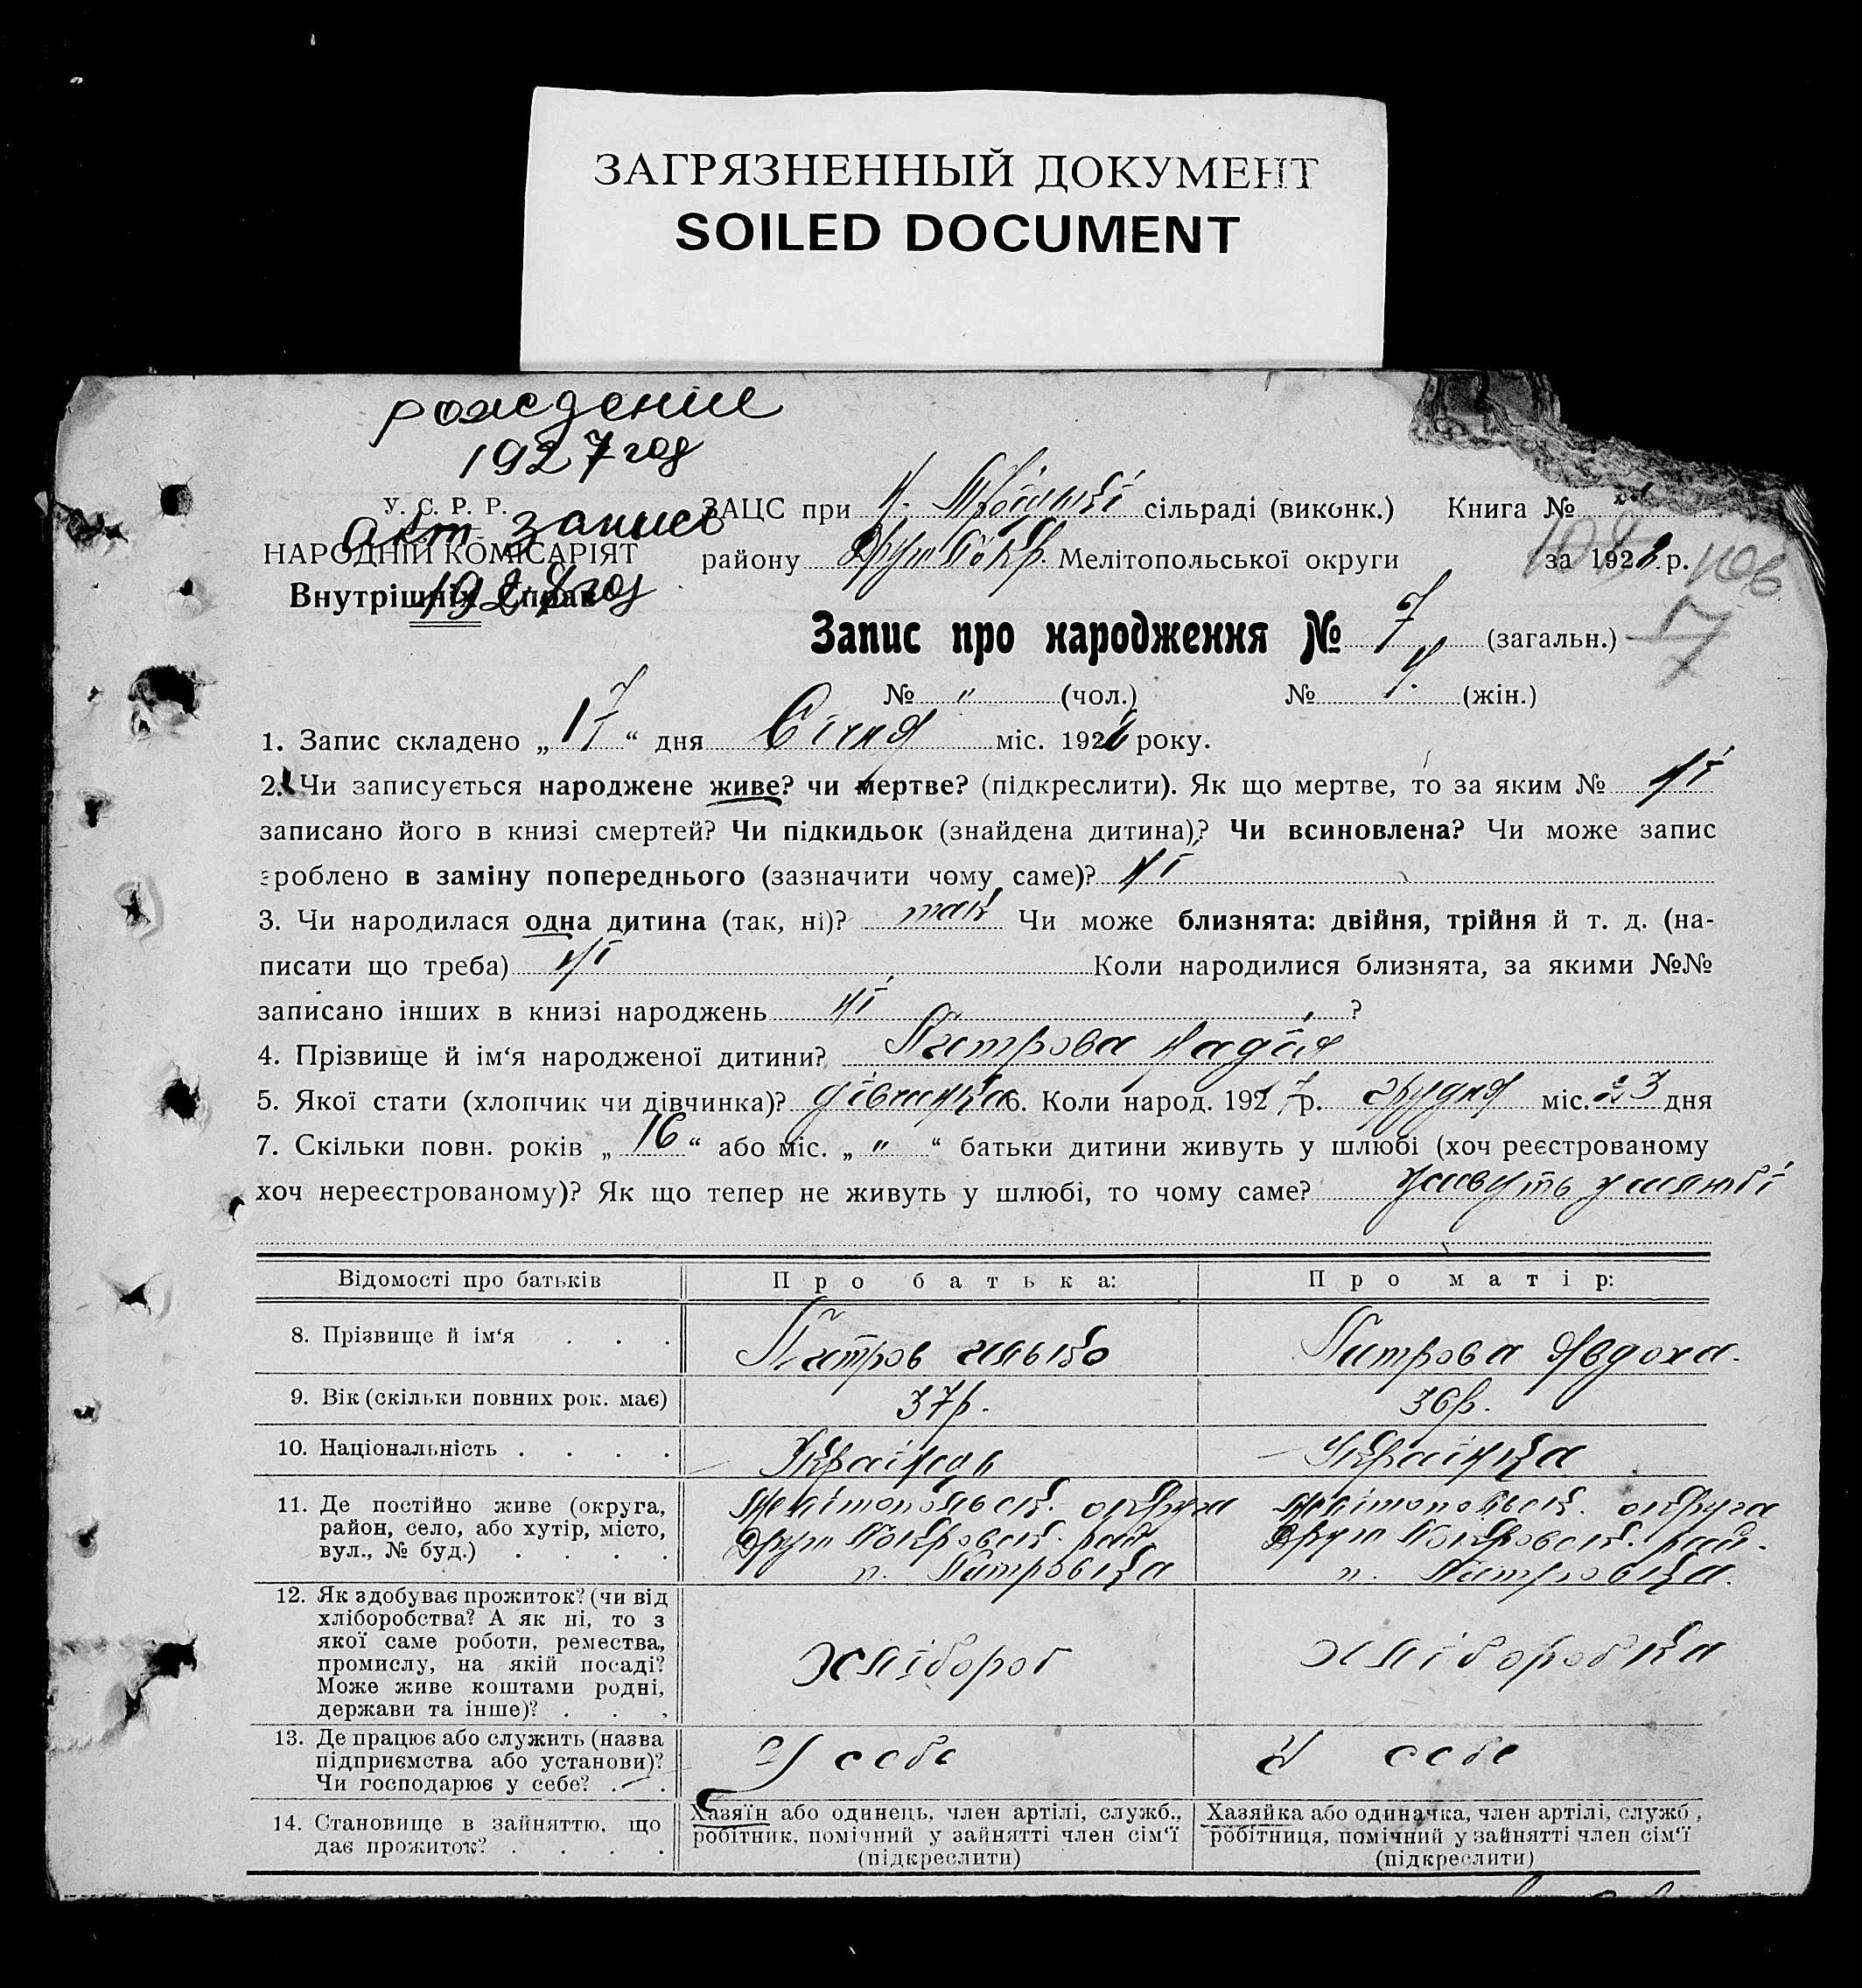 ЗАГРЯЗНЕННЫЙ ДОКУМЕНТ
SOILED DOCUMENT
рождение
1927 год
акт запись
У. С. Р. Р.
НАРОДНІЙ КОМІСАРІЯТ
Внутрішніх Справ
ЗАЦС при сільраді (виконк.) Книга №
району Мелітопольської округи за 1928 р.
106
Запис про народження № 7 (загальн.)
№ " (чол.) № (жін.)
1. Запис складено „ 17 “ дня Січня міс. 1928 року.
2. Чи записується народжене живе? чи мертве? (підкреслити). Як що мертве, то за яким № ні
записано його в книзі смертей? Чи підкидьок (знайдена дитина)? Чи всиновлена? Чи може запис
зроблено в заміну попереднього (зазначити чому саме)? ні
3. Чи народилася одна дитина (так, ні)? так Чи може близнята: двійня, трійня й т. д. (на-
писати що треба) ні Коли народилися близнята, за якими №№
записано інших в книзі народжень ні ?
4. Прізвище й ім‘я народженої дитини? Петрова Надія
5. Якої стати (хлопчик чи дівчинка)? дівчинка 6. Коли народ. 1927 р. грудня міс. 23 дня
7. Скільки повн. років „ 16 “ або міс. „ " “ батьки дитини живуть у шлюбі (хоч реєстрованому
хоч нереєстрованому)? Як що тепер не живуть у шлюбі, то чому саме? живуть у шлюбі
Відомості про батьків Про батька: Про матір:
8. Прізвище й ім‘я . . . Петров Петрова Явдоха.
9. Вік (скільки повних рок. має) 37р. 36р.
10. Національність . . . . Українець Українка
11. Де постійно живе (округа, Мелітопольск. округа Мелітопольск. округа
район, село, або хутір, місто, Друг Покровск. рай. Друг Покровск. рай.
вул., № буд.) . . . . п. Петровка п. Петровка.
12. Як здобуває прожиток? (чи від
хліборобства? А як ні, то з
якої саме роботи, ремества,
промислу, на якій посаді? хлібороб хліборобка
Може живе коштами родні,
держави та інше)? . . .
13. Де працює або служить (назва
підприємства або установи)? У себе У себе
Чи господарює у себе? . .
14. Становище в зайняттю, що Хазяїн або одинець, член артілі, служб., Хазяйка або одиначка, член артілі, служб.,
дає прожиток? . . . . робітник, помічний у зайнятті член сім‘ї робітниця, помічний у зайнятті член сім‘ї
(підкреслити) (підкреслити)